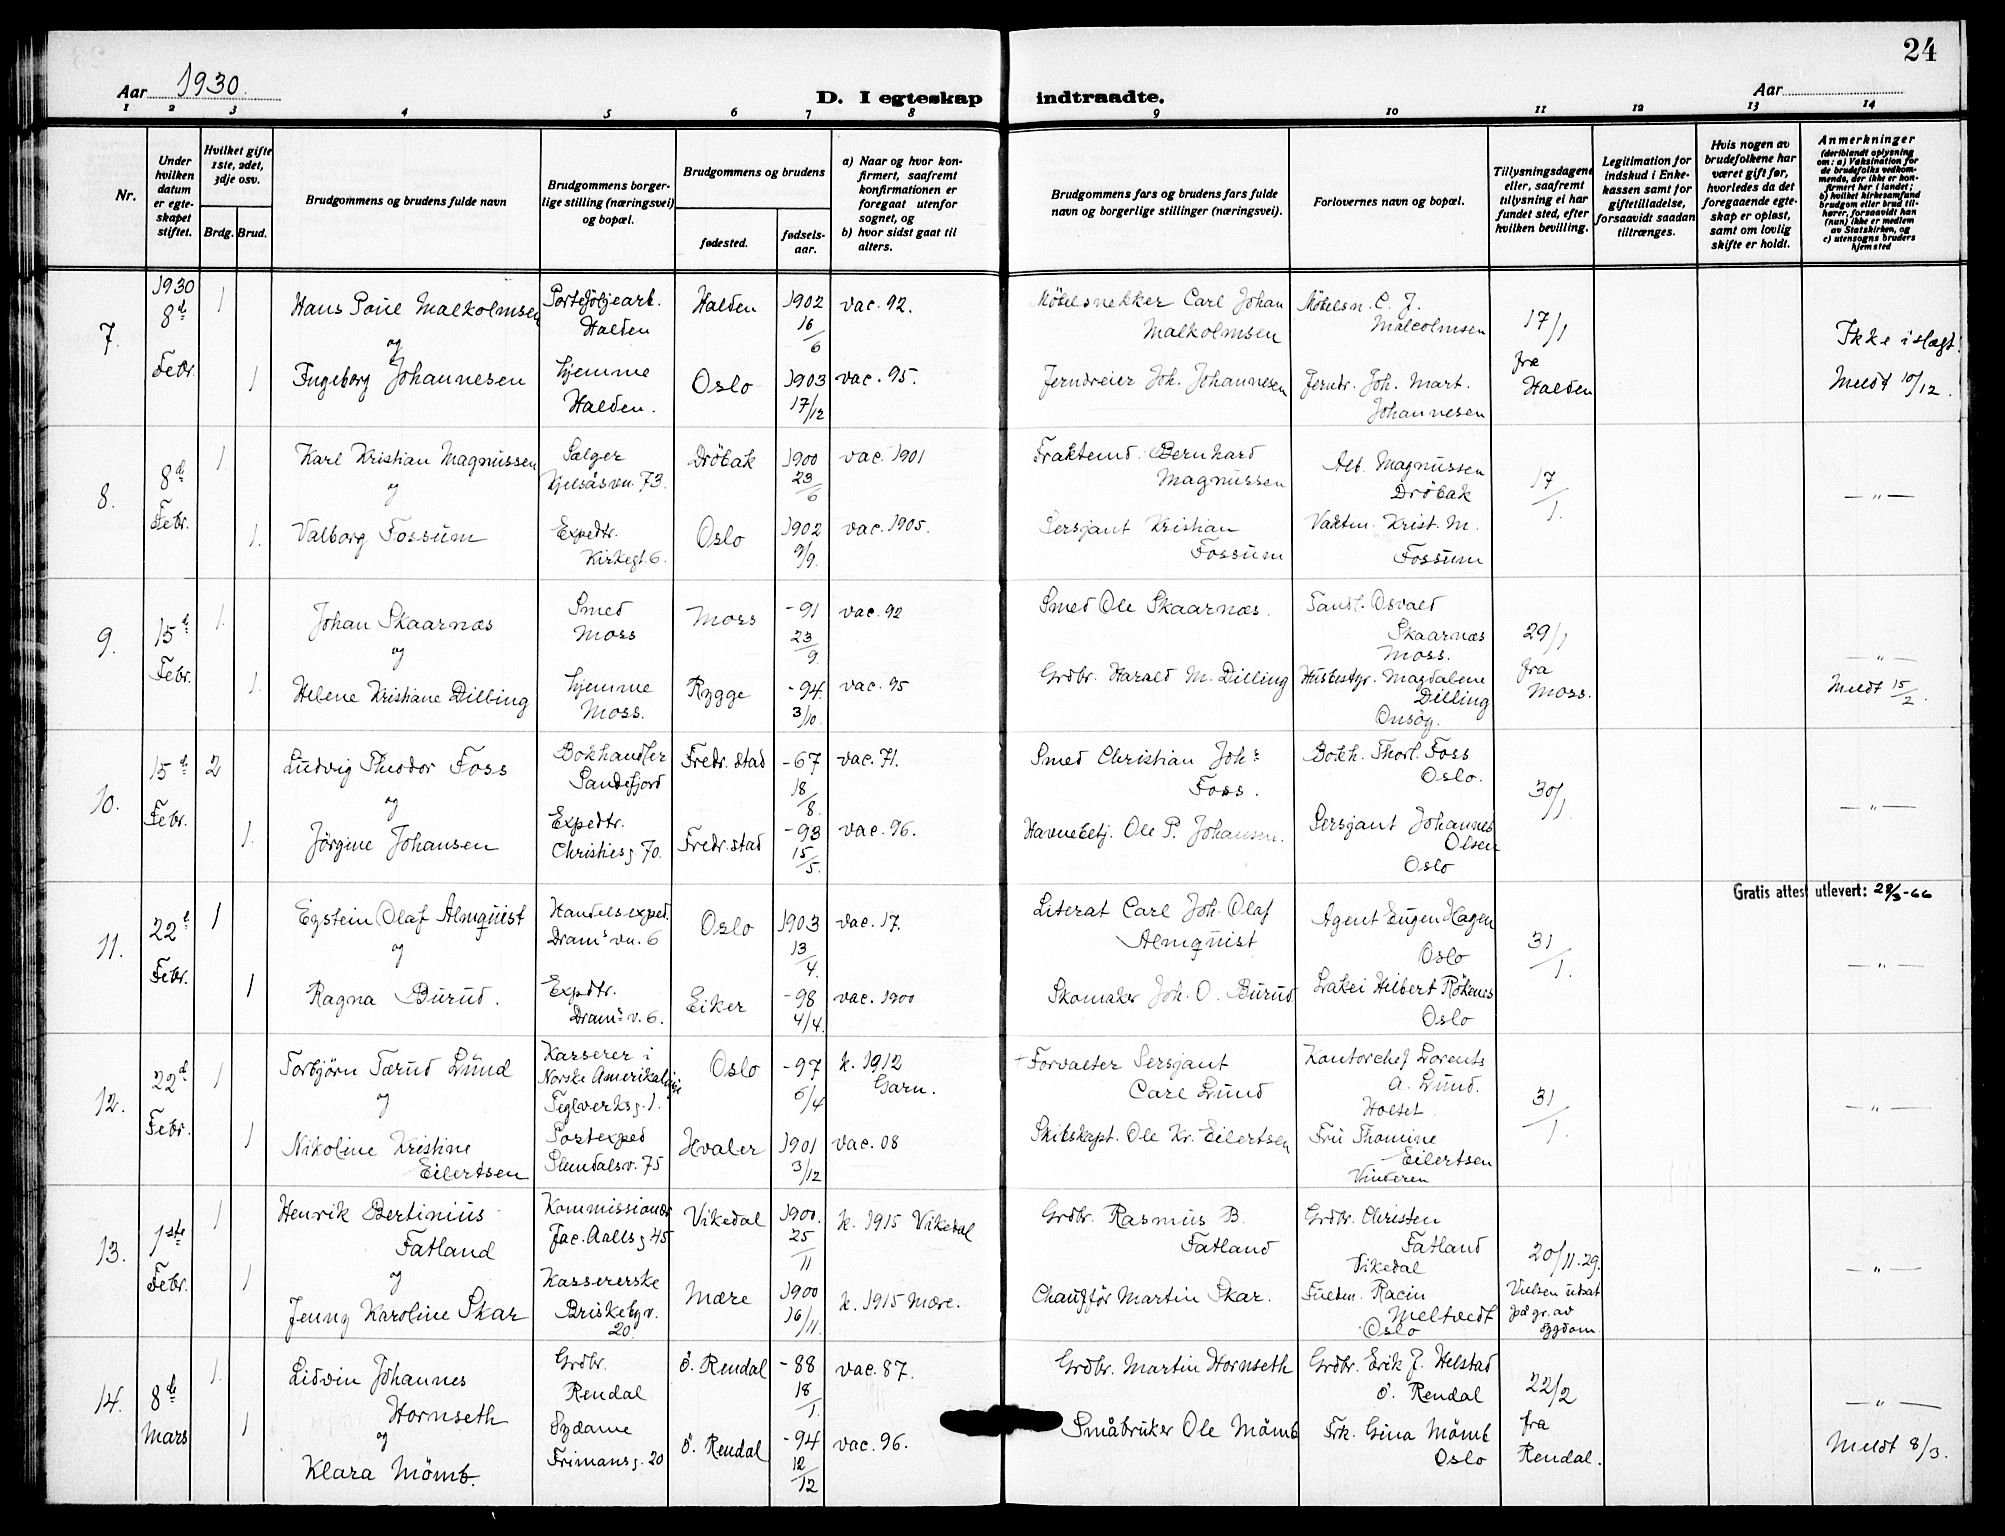 24
Aar 1930.
D. I egteskap indtraadte.
Aar
1 2 3 4 5 6 7 8 9 10 11 12 13 14
Nr.
Under hvilken datum er egteskapet stiftet.
Hvilket gifte 1ste, 2det, 3dje osv.
Brdg. Brud.
Brudgommens og brudens fulde navn
Brudgommens borgerlige stilling (næringsvei) og bopæl.
Brudgommens og brudens
fødested.
fødselsaar.
a) Naar og hvor konfirmert, saafremt konfirmationen er foregaat utenfor sognet, og
b) hvor sidst gaat til alters.
Brudgommens fars og brudens fars fulde navn og borgerlige stillinger (næringsvei).
Forlovernes navn og bopæl.
Tillysningsdagene eller, saafremt tillysning ei har fundet sted, efter hvilken bevilling.
Legitimation for indskud i Enkekassen samt for giftetilladelse, forsaavidt saadan tiltrænges.
Hvis nogen av brudefolkene har været gift før, hvorledes da det foregaaende egteskap er opløst, samt om lovlig skifte er holdt.
Anmerkninger (deriblandt oplysning om: a) Vaksination for de brudefolks vedkommende, der ikke er konfirmert her i landet; b) hvilket kirkesamfund brudgom eller brud tilhører, forsaavidt han (hun) ikke er medlem av Statskirken, og c) utensogns bruders hjemsted
7. 1930 8d Febr. 1 Hans Poul Malkolmsen Portefôljearb. Halden Halden 1902 16/6 vac. 92. Môbelsnekker Carl Johan Malkolmsen Môbelsn. C. J. Malcolmsen 17/1 Ikke i slægt.
og
1 Ingeborg Johannesen hjemme Halden. Oslo 1903 17/12 vac. 95. Jerndreier Joh. Johannesen Jerndr. Joh. Mart. Johannesen fra Halden Meldt 10/12.
8. 8d Febr. 1. Karl Kristian Magnussen Selger Kjelsåsvn. 73. Drôbak 1900 23/6 vac. 1901 Fraktemd. Bernhard Magnussen Alb. Magnussen Drôbak 17/1. — " —
og
1. Valborg Fossum Expedtr. Kirkegt. 6. Oslo 1902 9/9. vac. 1905. Sersjant Kristian Fossum Vaktm. Krist. M. Fossum
9. 15d Febr. 1. Johan Skaarnæs Smed Moss Moss -91 23/9. vac. 92 Smed Ole Skaarnæs. Tandl. Osvald Skaarnæs Moss. 29/1 — " —
og
1. Helene Kristiane Dilling hjemme Moss. Rygge -94. 3/10. vac. 95 Grdbr. Harald M. Dilling Husbestyr. Magdalene Dilling Onsôy. fra Moss. Meldt 15/2.
10. 15d Febr. 2 Ludvig Theodor Foss Bokhandler Sandefjord Fredr.stad -67 18/8. vac. 71. Smed Christian Joh: Foss. Bokh. Thorl. Foss Oslo. 30/1. — " —
og
1. Jôrgine Johansen Expedtr. Christiesg 70. Fredr.stad -93 15/5. vac. 96. Havnebetj. Ole P. Johansen. Sersjant Johannes Olsen Oslo
Gratis attest utlevert: 28/3-66
11. 22d Febr. 1 Egstein Olaf Almquist Handelsexped. Drams vn. 6 Oslo 1903 13/4. vac. 17. Literat Carl Joh. Olaf Almquist Agent Eugen Hagen Oslo 31/1. — " —
og
1 Ragna Burud. Expdtr. Drams v. 6. Eiker -98 4/4. vac. 1900 Skomaker Joh. O. Burud Lakei Hilbert Rôkenes Oslo
12. 22d Febr. 1 Torbjôrn Tærud Lund Kasserer i Norske Amerikalinje Teglverksg. 1. Oslo -97 6/4 k. 1912 Garn. Forvalter Sersjant Carl Lund Kontorchef Lorents A. Lund. Holset. 31/1. — " —
og
1 Nikoline Kristine Eilertsen Postexped Slemdalsv. 75 Hvaler 1901 3/12 vac. 08 Skibskapt. Ole Kr. Eilertsen Fru Thomine Eilertsen Vinderen
13. 1ste Febr. 1 Henrik Bertinius Fatland Kommissionær Jac. Aallsg 45 Vikedal 1900. 25/11 k. 1915 Vikedal Grdbr. Rasmus B. Fatland Grdbr. Christen Fatland Vikedal 20/11.29. — " —
og
1 Jenny Karoline Skar Kassererske Briskebyv. 20. Mære 1900 16/11. k. 1915 Mære. Chauffôr Martin Skar. Meltvedt Oslo Vielsen udsat på gr. av sygdom
14. 8de Mars 1. Lidvin Johannes Hornseth Grdbr. Rendal ô. Rendal -88 18/1. vac. 87. Grdbr. Martin Hornseth Grdbr. Erik J. Helstad ô. Rendal 22/2 — " —
og
1 Klara Mômb. Sydame Frimansg. 20 ô. Rendal -94 12/12 vac. 96. Småbruker Ole Mômb Frk. Gina Mômb Oslo fra Rendal. Meldt 8/3.